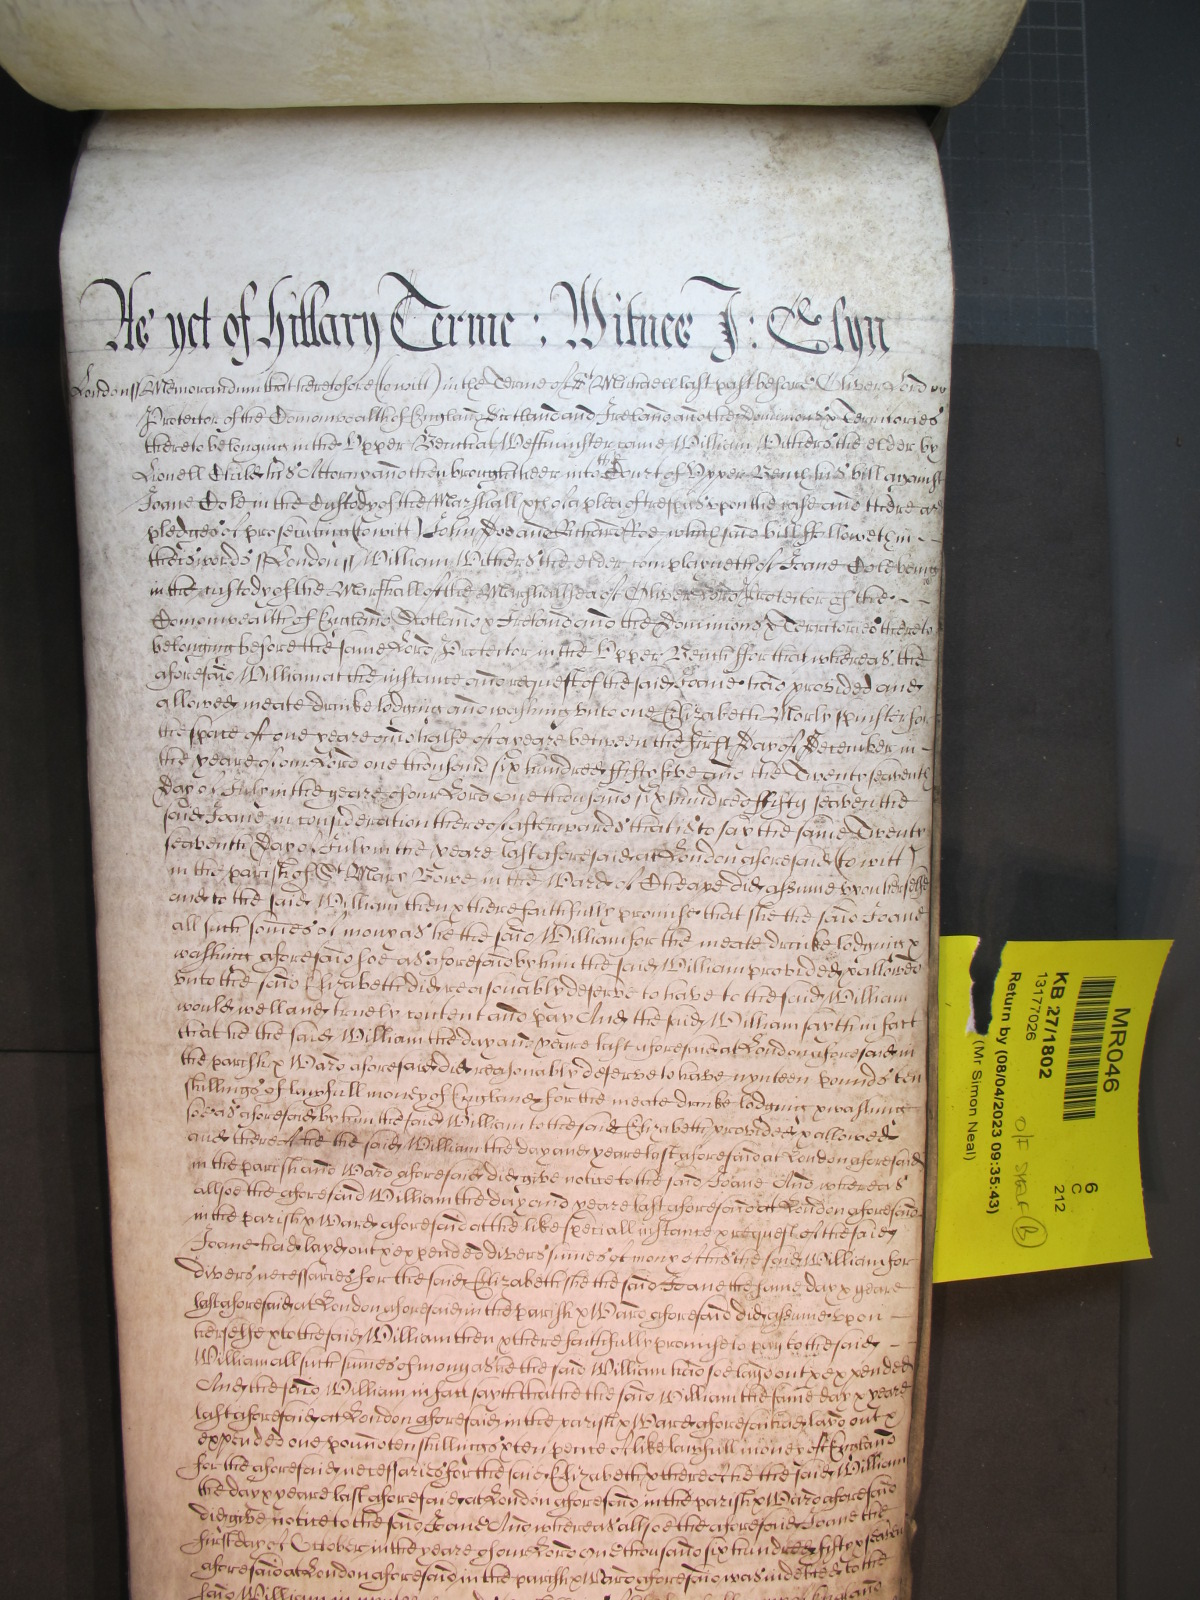 As yet of Hillary Terme : Witnes J: Glyn
London ss Memorandum that heretofore (to witt) in the Terme of St Michaell last past before Oliver Lord
Protector of the Comonwealth of England Scotland and Ireland and the dominions & Territories
thereto belonging in the Upper Bench at Westminster came William Withers the elder by
Lionell his Attorny and then brought heer into the Court of Upper Bench his bill against
Joane Cole in the Custody of the Marshall &c of a plea of trespas upon the case and there are
pledges of prosecuting (to witt) John Doe and Richard Roe which said bill ffolloweth in
theis words ss London ss William Withers the elder complayneth of Joane Cole being
in the custody of the Marshall of the Marshalsea of Oliver Lord Protector of the
Comonwealth of England Scotland & Ireland and the Dominions & Territories thereto
belonging before the same Lord Protector in the Upper Bench ffor that whereas the
aforesaid William at the instance and request of the said Joane had provided and
allowed meate drinke lodging and washing unto one Elizabeth Morly spinster for
the space of one yeare and halfe of a yeare betweene the first Day of December in
the yeare of our Lord one thousand six hundred ffifty five and the Twenty seaventh
Day of July in the yeare of our Lord one thousand six hundred ffifty seaven the
said Joane in consideration thereof afterwards that is to say the same Twenty
seaventh Day of July in the yeare last aforesaid at London aforesaid (to witt)
in the parish of St Mary Bowe in the Ward of Cheape did assume upon herselfe
and to the said William then & there faithfully promise that she the said Joane
all such somes of mony as he the said William for the meate drinke lodging &
washing aforesaid soe as aforesaid by him the said William provided & allowed
unto the said Elizabeth did reasonably deserve to have to the said William
would well and truely content and pay And the said William sayth in fact
that he the said William the day and yeare last aforesaid at London aforesaid in
the parish & Ward aforesaid did reasonably deserve to have nynteen pounds ten
shillings of lawfull money of England for the meate drinke lodging & washing
soe as aforesaid by him the said William to the said Elizabeth provided & allowed
and thereof he the said William the day and yeare last aforesaid at London aforesaid
in the parish and Ward aforesaid did give notice to the said Joane And whereas
allsoe the aforesaid William the day and yeare last aforesaid at London aforesaid
in the parish & Ward aforesaid at the like speciall instance & request of the said
Joane had layd out & expended divers sumes of mony of his the said William for
divers necessaries for the said Elizabeth she the said Joane the same day & yeare
last aforesaid at London aforesaid in the parish & Ward aforesaid did assume upon
herselfe & to the said William then & there faithfully promise to pay to the said
William all such sumes of mony as he the said William had soe layd out & expended
And the said William in fact sayth that he the said William the same day & yeare
last aforesaid at London aforesaid in the parish & Ward aforesaid had layd out &
expended one pound ten shillings & ten pence of like lawfull money of England
for the aforesaid necessaries for the said Elizabeth & thereof he the said William
the day & yeare last aforesaid at London aforesaid in the parish & Ward aforesaid
did give notice to the said Joane And whereas allsoe the aforesaid Joane the
first day of October in the yeare of our Lord One thousand six hundred fifty & seaven
aforesaid at London aforesaid in the parish & Ward aforesaid was indebted to the
said William in
MR046
6
C
212
KB 27/1802
13177026
Return by (08/04/2023 09:35:43)
(Mr Simon Neal)